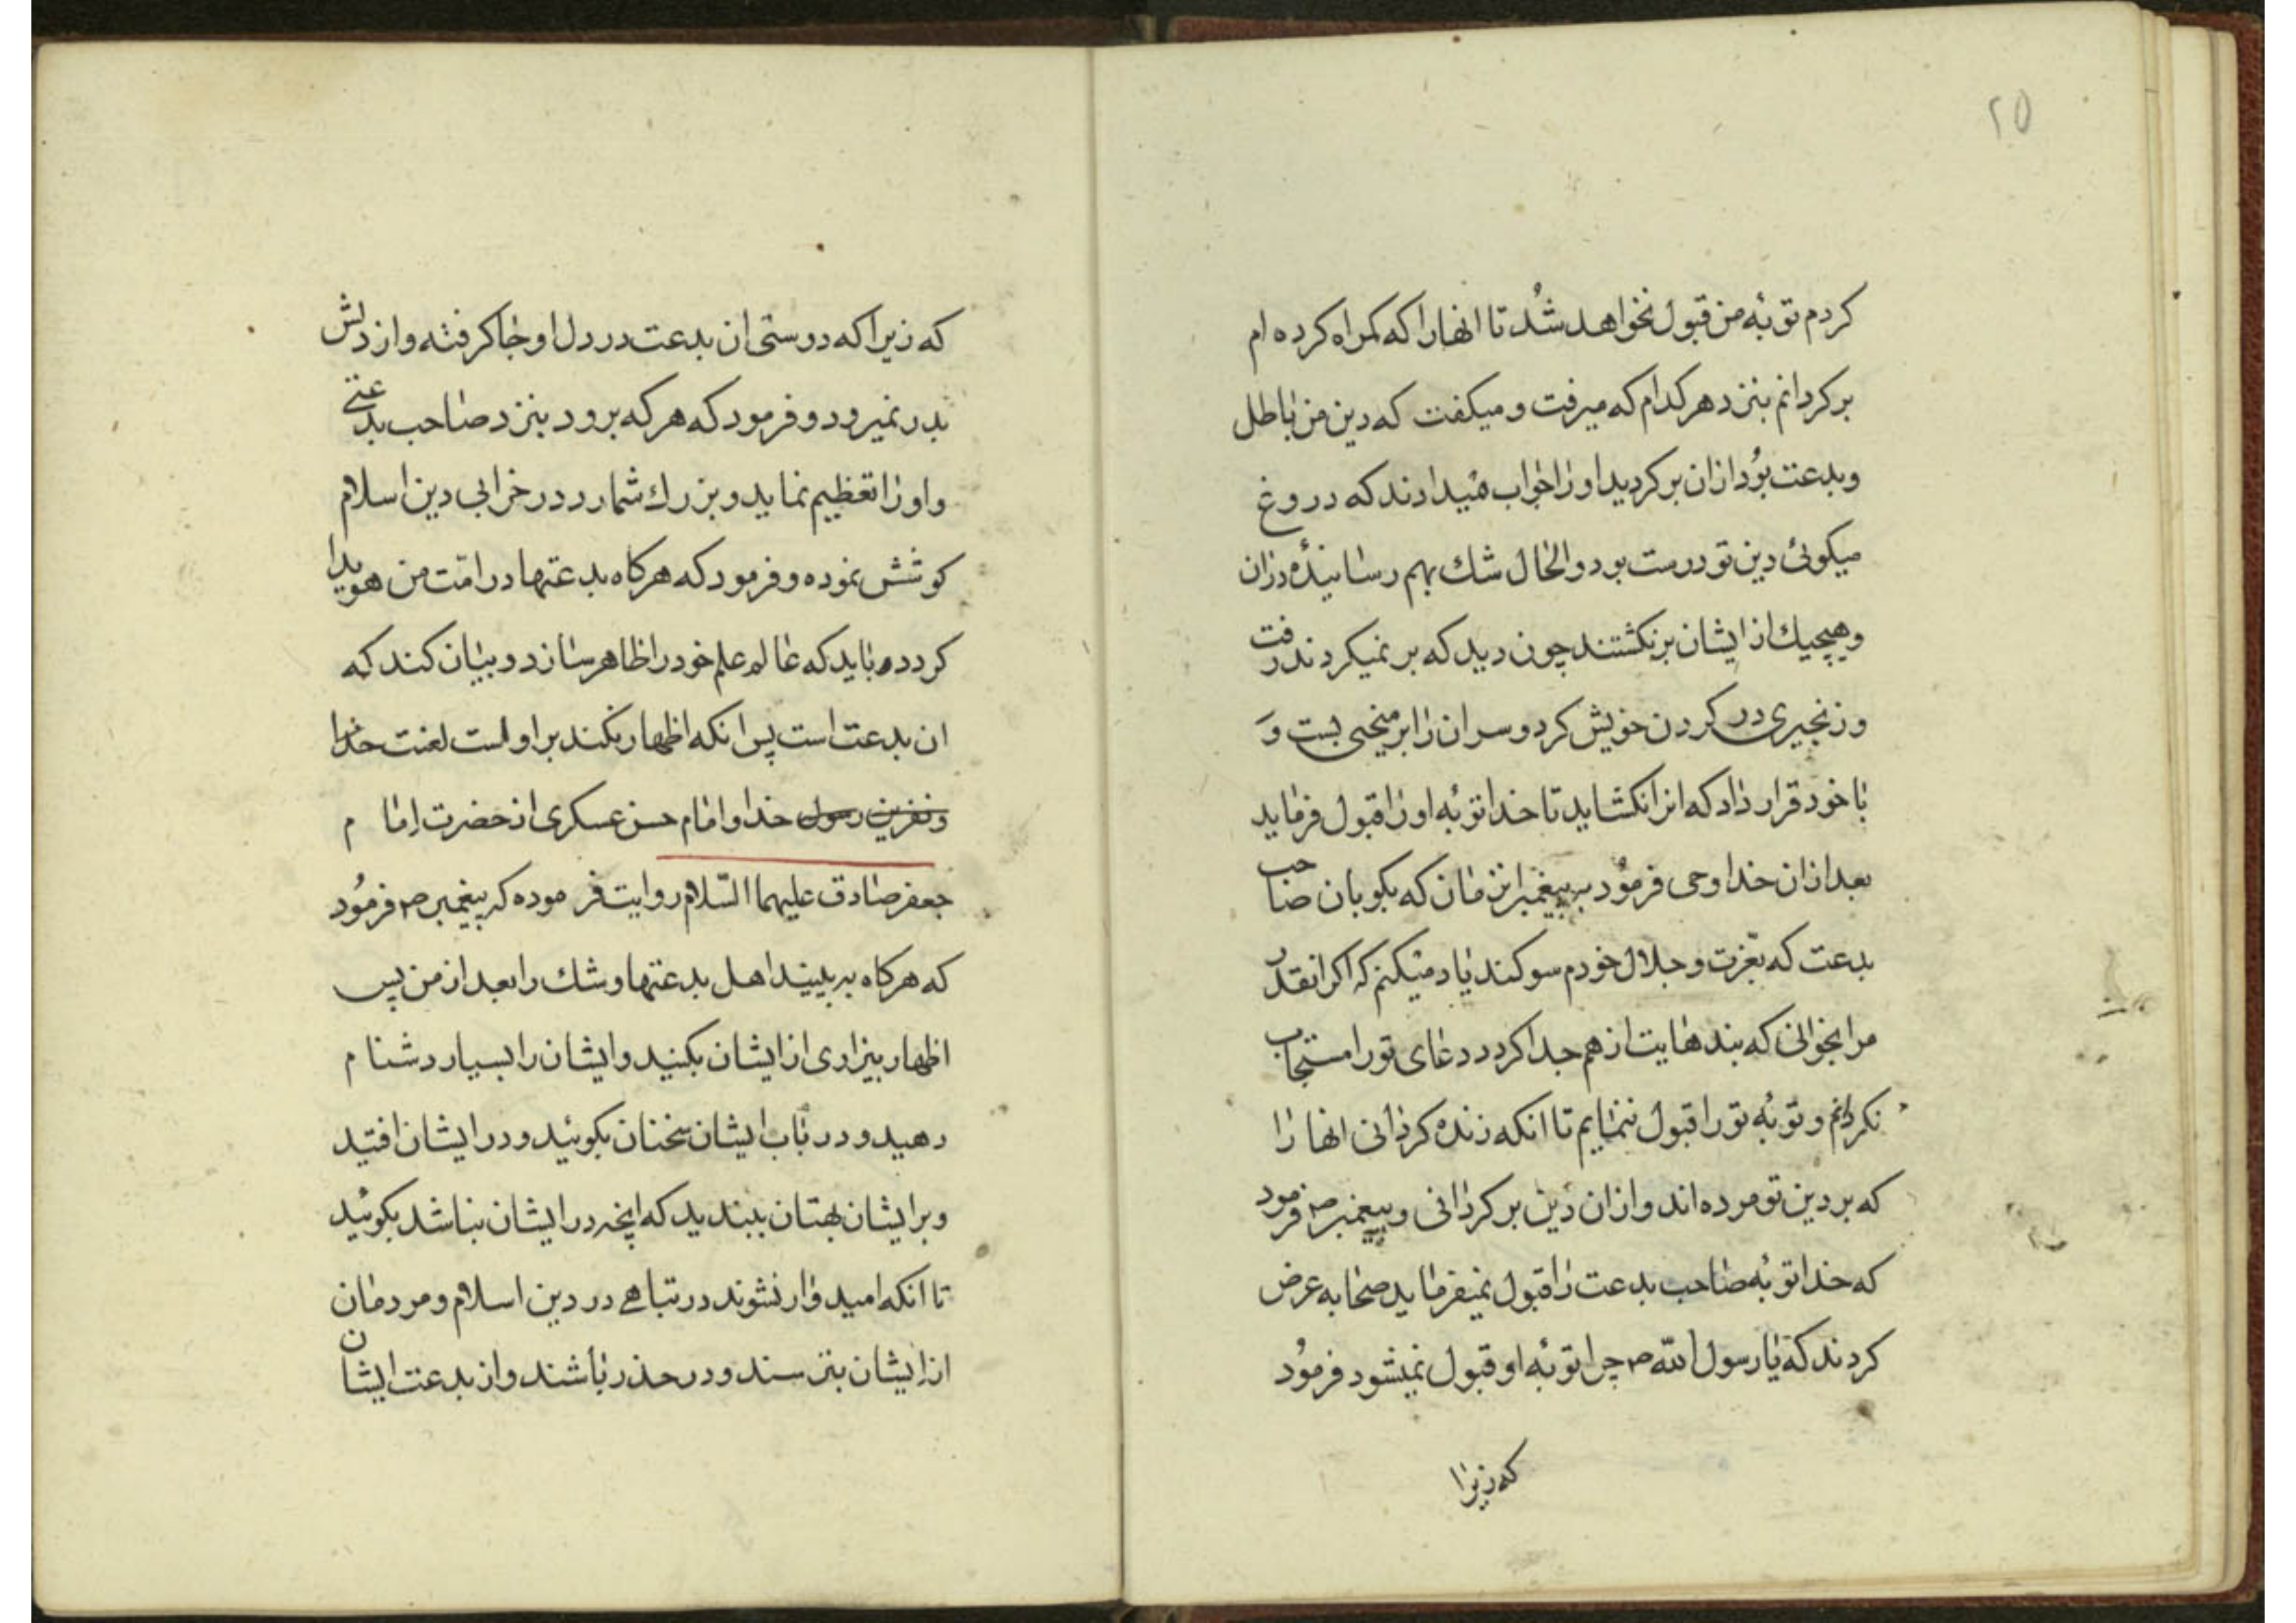 ۲۵
کردم توبه من قبول نخواهد شُد تا انها را که کمراه کرده ام
برکردانم بنزد هر کدام که میرفت و میکفت که دین من باطل
و بدعت بوُد ازان برکردید او را جواب میدادند که دروغ
میکوئی دین تو درست بود و الحال شك بهم رسانیدهٔ دران
و هیچیك از ایشان برنکشتند چون دید که بر نمیکردند رفت
و زنجیری در کردن خویش کرد و سر ان را بر میخی بست وَ
با خود قرار داد که انرا نکشاید تا خدا توبه او را قبول فرماید
بعد ازان خدا وحی فرموُد به پیغمبر انزمان که بکو بان صاحب
بدعت که بعّزت و جلال خودم سوکند یاد میکنم که اکر انقدر
مرا بخوانی که بندهایت از هم جدا کردد دعای تو را مستجاب
نکردانم و توبه تو را قبول ننمایم تا انکه زنده کردانی انها را
که بر دین تو مرده اند و ازان دین برکردانی و پیغمبر ص فرمود
که خدا توبه صاحب بدعت را قبول نمیفرماید صحابه عرض
کردند که یا رسول اللّه ص چرا توبه او قبول نمیشود فرموُد
که زیرا
که زیرا که دوستی ان بدعت در دل او جا کرفته و از دلش
بدر نمیرود و فرمود که هر که برود بنزد صاحب بدعتی
و او را تعظیم نماید و بزرك شمارد در خرابی دین اسلام
کوشش نموده و فرمود که هرکاه بدعتها در امّت من هویدا
کردد باید که عالم علم خود را ظاهر سازد و بیان کند که
ان بدعت است پس انکه اظهار نکند بر اوست لعنت خدا
و نفرین رسول خدا و امام حسن عسکری از حضرت اما م
جعفر صادق علیهما السّلام روایت فرموده که پیغمبر ص فرموُد
که هرکاه به بینید اهل بدعتها و شك را بعد از من پس
اظهار بیزاری از ایشان بکنید و ایشان را بسیار دشنا م
دهید و در باب ایشان سخنان بکوئید و در ایشان افتید
و بر ایشان بهتان ببندید که انچه در ایشان نباشد بکوئید
تا انکه امیدوار نشوند در تباهے در دین اسلام و مردمان
از ایشان بترسند و در حذر باشند و از بدعت ایشان